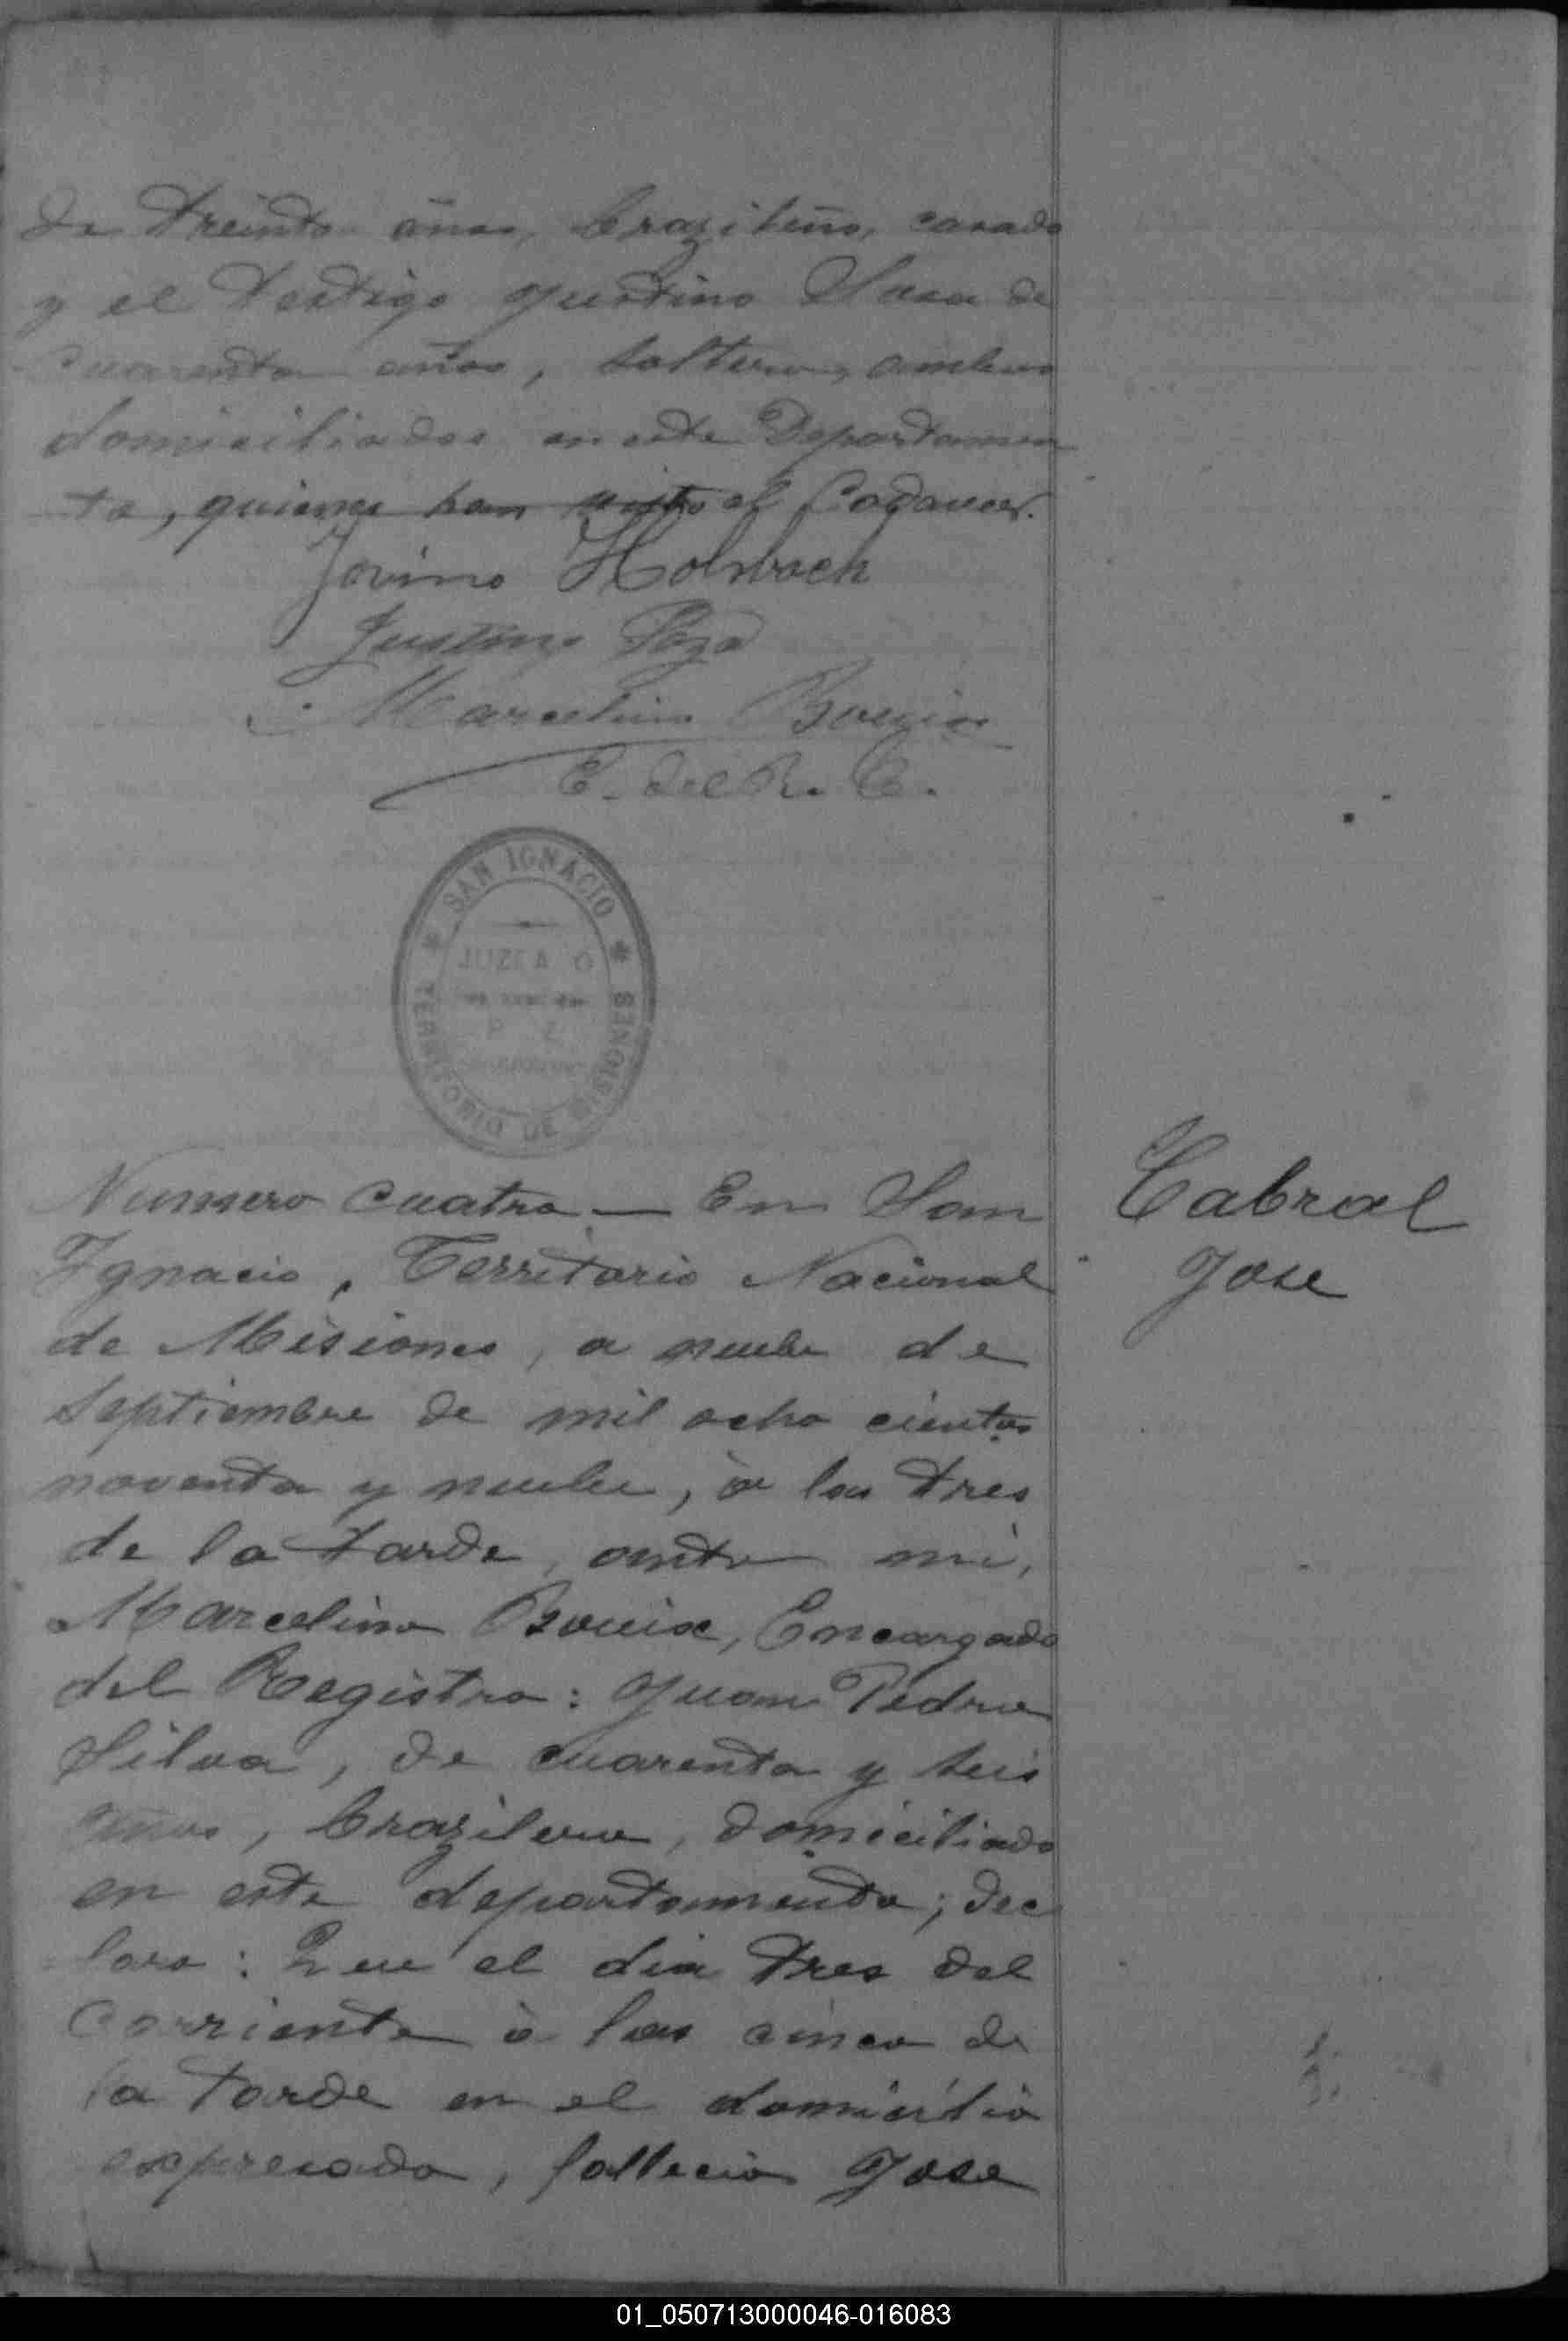 de treinta años, brazileño, casado
y el testigo Justino Sosa de
cuarenta años, soltero, ambos
domiciliados en este Departamen
to, quienes han visto el Cadaver.
Jovino Holsbach
Justino
Marcelino Bouix
E. del R. C.
SAN IGNACIO
JUZGADO
TERRITORIO DE MISIONES
Numero cuatro — En San
Ignacio, Territorio Nacional
de Misiones, a nuebe de
Septiembre de mil ocho cientos
noventa y nuebe, à las tres
de la tarde, ante mi,
Marcelino Bouix, Encargado
del Registro: Juan Pedro
Silva, de cuarenta y seis
años, brazilero, domiciliado
en este departamento; dec
lara: Que el dia tres del
corriente à las cinco de
la tarde en el domicilio
expresado, fallecio Jose
Cabral
Jose
01_050713000046-016083